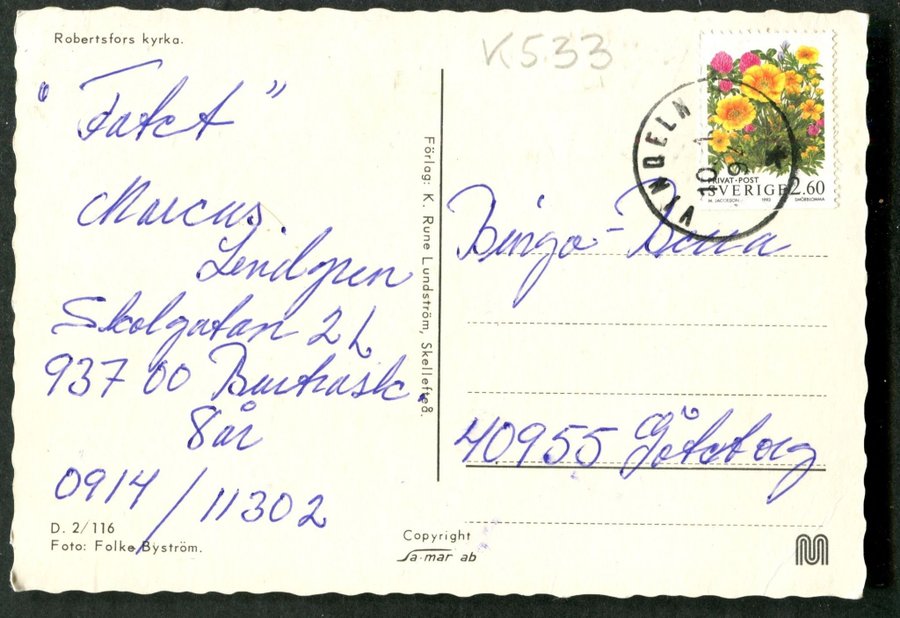 Robertsfors kyrka.
K533
"Fatct"
Marcus
Lindgren
Skolgatan 2 L
937 00 Burträsk.
8 år
0914 / 11302
D. 2/116
Foto: Folke Byström.
Förlag: K. Rune Lundström, Skellefteå.
Copyright
Sa-mar ab
VINDELN
10
9
PRIVAT·POST
SVERIGE 2.60
M. JACOBSON 1993 SMÖRBLOMMA
Bingo-
40955 Göteborg